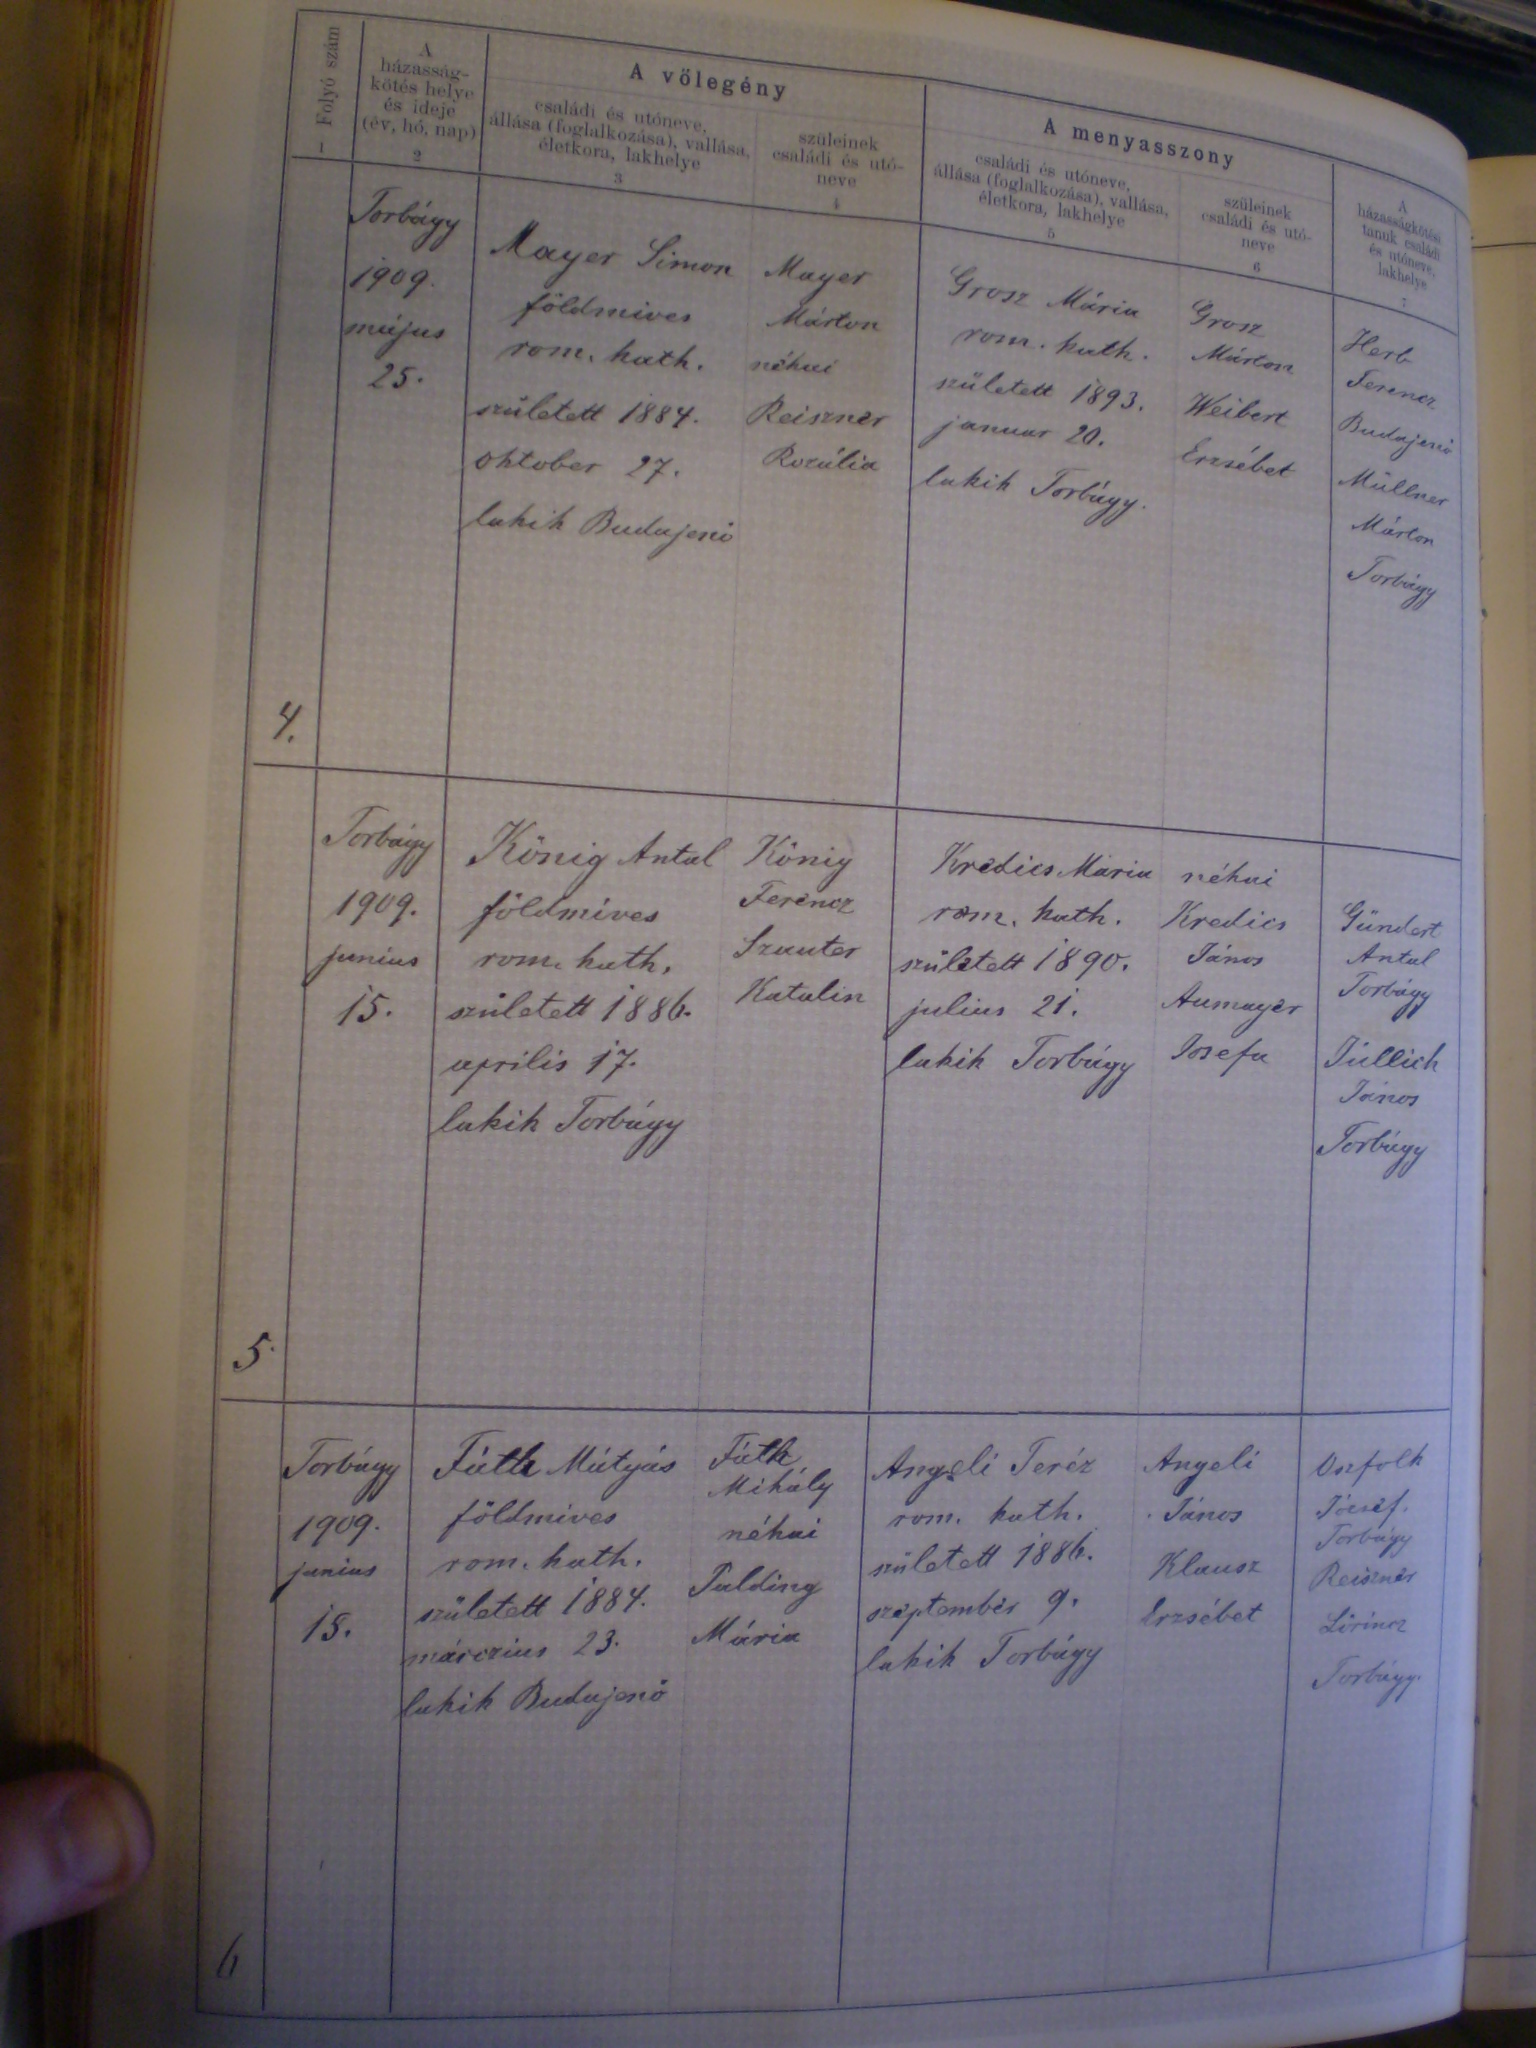 Folyó szám
1
A
házasság-
kötés helye
és ideje
(év, hó, nap)
2
A vőlegény
családi és utóneve,
állása (foglalkozása), vallása,
életkora, lakhelye
3
szüleinek
családi és utó-
neve
4
A menyasszony
családi és utóneve,
állása (foglalkozása), vallása,
életkora, lakhelye
5
szüleinek
családi és utó-
neve
6
A
házasságkötési
tanuk családi
és utóneve,
lakhelye
7
4.
Torbágy
1909.
május
25.
Mayer Simon
földmives
rom. kath.
született 1884.
oktober 27.
lakik Budajenő
Mayer
Márton
néhai
Reiszner
Rozália
Grosz Mária
rom. kath.
született 1893.
januar 20.
lakik Torbágy.
Grosz
Márton
Weibert
Erzsébet
Herb
Ferencz
Budajenő
Müllner
Márton
Torbágy
5.
Torbágy
1909.
junius
15.
König Antal
földmives
rom. kath.
született 1886.
aprilis 17.
lakik Torbágy
König
Ferencz
Szauter
Katalin
Kredics Mária
rom. kath.
született 1890.
julius 21.
lakik Torbágy
néhai
Kredics
János
Aumayer
Josefa
Gündert
Antal
Torbágy
Jüllich
János
Torbágy
6
Torbágy
1909.
junius
15.
Fáth Mátyás
földmives
rom. kath.
született 1884.
márczius 23.
lakik Budajenő
Fáth
Mihály
néhai
Palding
Mária
Angeli Teréz
rom. kath.
született 1886.
szeptember 9.
lakik Torbágy
Angeli
János
Klausz
Erzsébet
József.
Torbágy
Reiszner
Lőrincz
Torbágy.